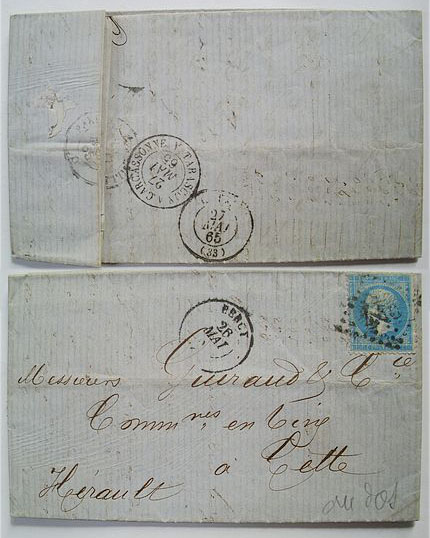 CARCASSONNE À TARASCON
27
MAI
65
27
MAI
65
(33)
BERCY
26
MAI
Messieurs Guiraud & Cie
Commnres en Vins
à Cette
Hérault
au dos